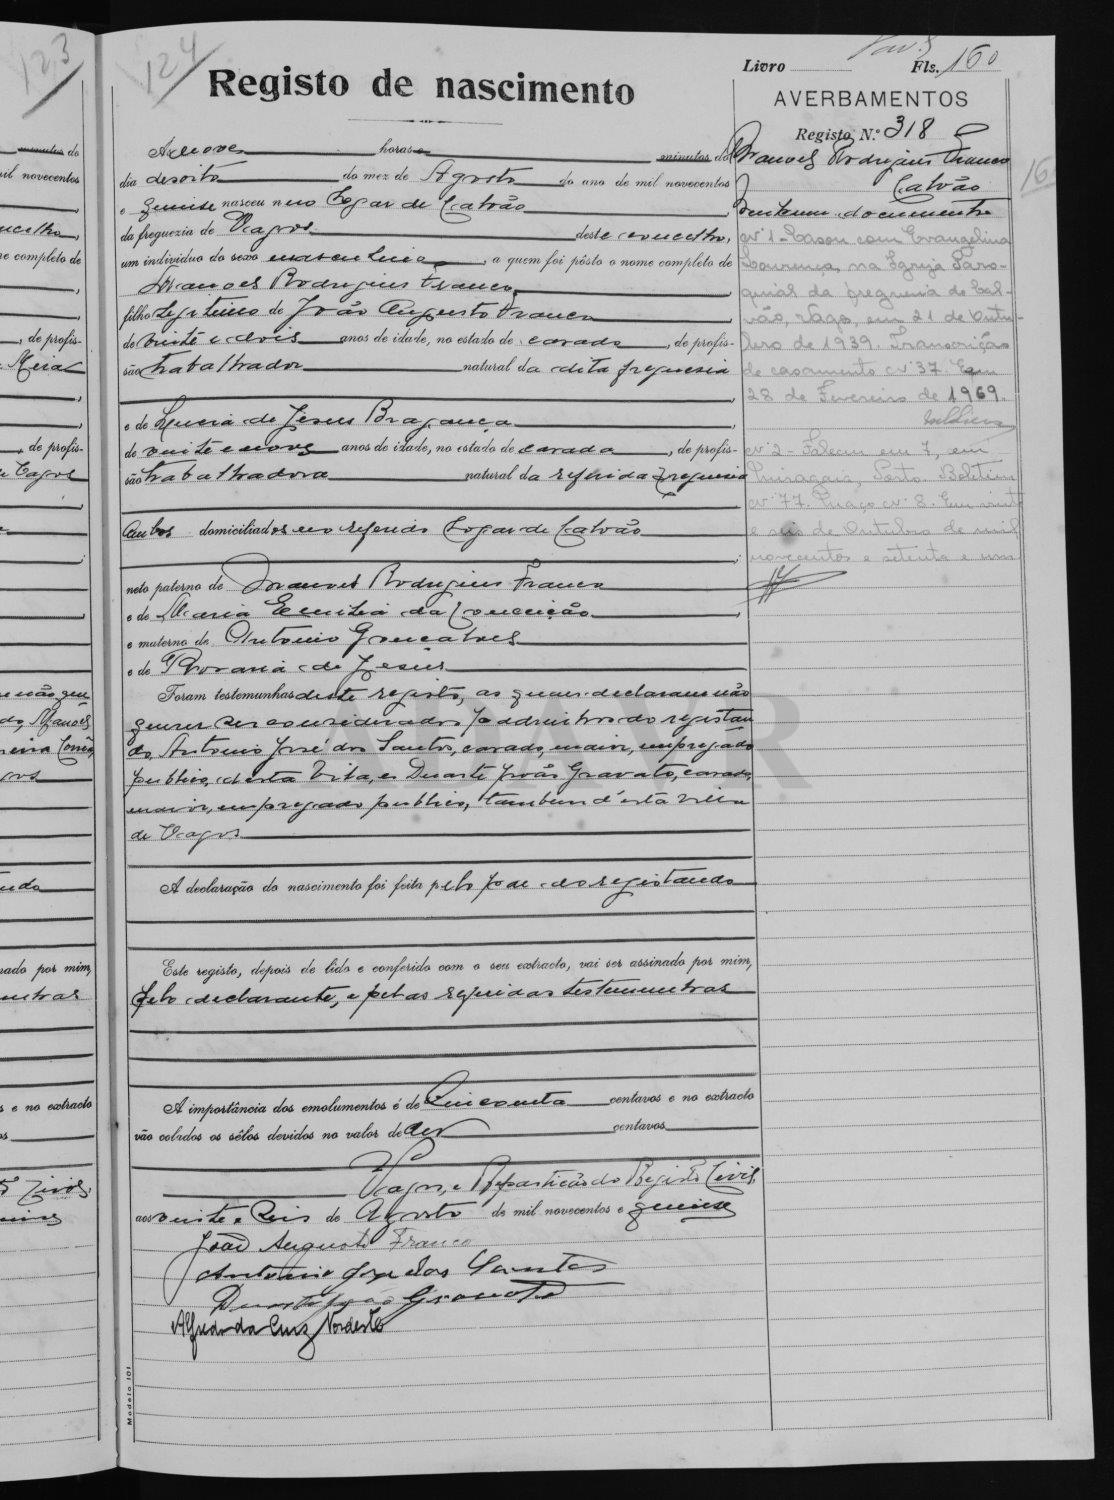 123
124
Registo de nascimento
Livro Fls. 160
AVERBAMENTOS
Registo N.º 318
Manoel Rodrigues Franco
Calvão
Nenhum documento
Ás nove horas e minutos do
dia desoito do mez de Agosto do ano de mil novecentos
e quinse nasceu no Logar de Calvão,
da freguezia de Vagos deste concelho,
um individuo do sexo masculino, a quem foi pôsto o nome completo de
Manoel Rodrigues Franco,
filho legitimo de João Augusto Franco,
de vinte e dois anos de idade, no estado de casado, de profis-
são trabalhador natural da dita freguesia
e de Maria de Jesus Bragança,
de vinte e nove anos de idade, no estado de casada, de profis-
são trabalhadora natural da referida freguesia
Ambos domiciliados no referido Logar de Calvão
neto paterno de Manoel Rodrigues Franco
e de Maria Emilia da Conceição,
e materno de Antonio Gonçalves
e de Rosaria de Jesus
Foram testemunhas deste registo, as quaes declaram não
querer ser considerados padrinhos do registan
do, Antonio José dos Santos, casado, maior, empregado
publico, desta Vila, e Duarte João Gravato, casado,
maior, empregado publico, tambem d'esta vila
de Vagos
A declaração do nascimento foi feita pelo pae do registando
Este registo, depois de lido e conferido com o seu extracto, vai ser assinado por mim,
pelo declarante, e pelas referidas testemunhas
A importância dos emolumentos é de Cincoenta centavos e no extracto
vão colados os sêlos devidos no valor de dez centavos
Vagos, e Repartição do Registo Civil,
aos vinte e seis de Agosto de mil novecentos e quinse
João Augusto Franco
Antonio José dos Santos
Duarte João Gravato
Alfredo da Cruz Nordeste
Modelo 101
Nº 1 - Casou com Evangelina
Lourenço, na Igreja Paro-
quial da freguesia de Cal-
vão, Vagos, em 21 de Outu-
bro de 1939. Transcrição
de casamento nº 37. Em
28 de Fevereiro de 1969.
Nº 2 - Faleceu em 7, em
Miragaia, Porto. Boletim
nº 77. Maço nº 8. Em vinte
e seis de Outubro de mil
novecentos e setenta e um
ADAVR